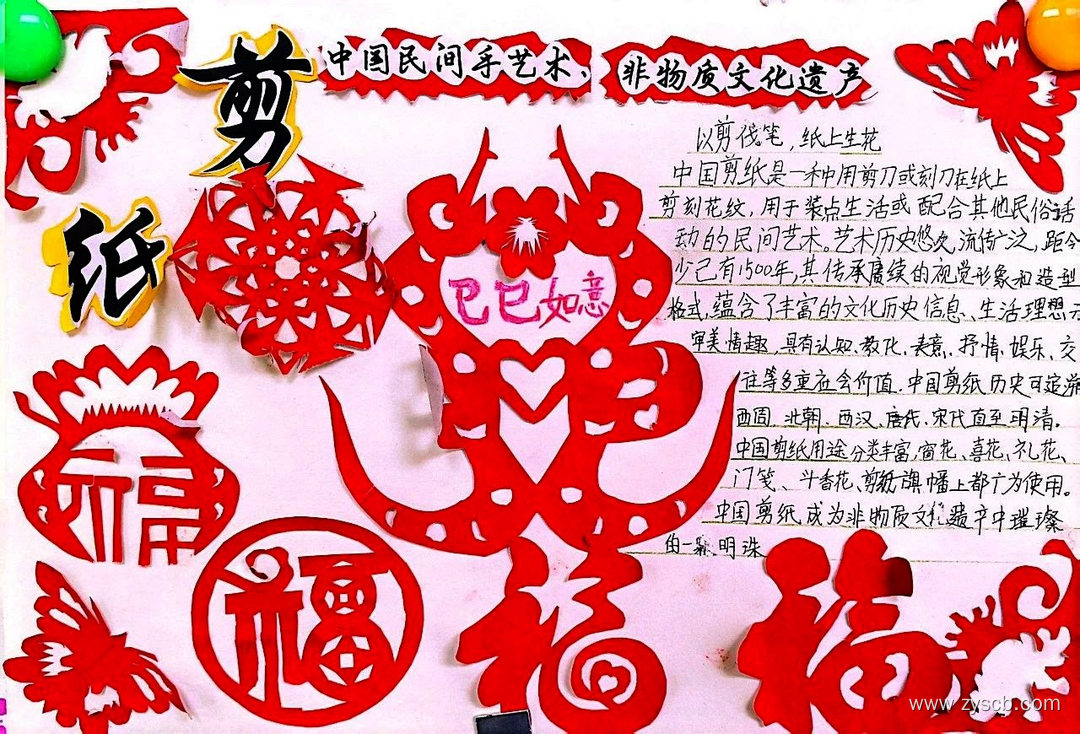 剪纸
中国民间手艺术、
非物质文化遗产
以剪代笔，纸上生花
中国剪纸是一种用剪刀或刻刀在纸上
剪刻花纹，用于装点生活或配合其他民俗活
动的民间艺术。艺术历史悠久，流传广泛，距今
少已有1500年，其传承赓续的视觉形象和造型
格式，蕴含了丰富的文化历史信息、生活理想
审美情趣，具有认知、教化、表意、抒情、娱乐、交
往等多重社会价值．中国剪纸历史可追溯
西周、北朝、西汉、唐代、宋代直至明清。
中国剪纸用途分类丰富，窗花、喜花、礼花、
门笺、斗香花、剪纸旗幡上都广为使用。
中国剪纸成为非物质文化遗产中璀璨
的一颗明珠
巳巳如意
福
福
福
福
www.zyscb.com